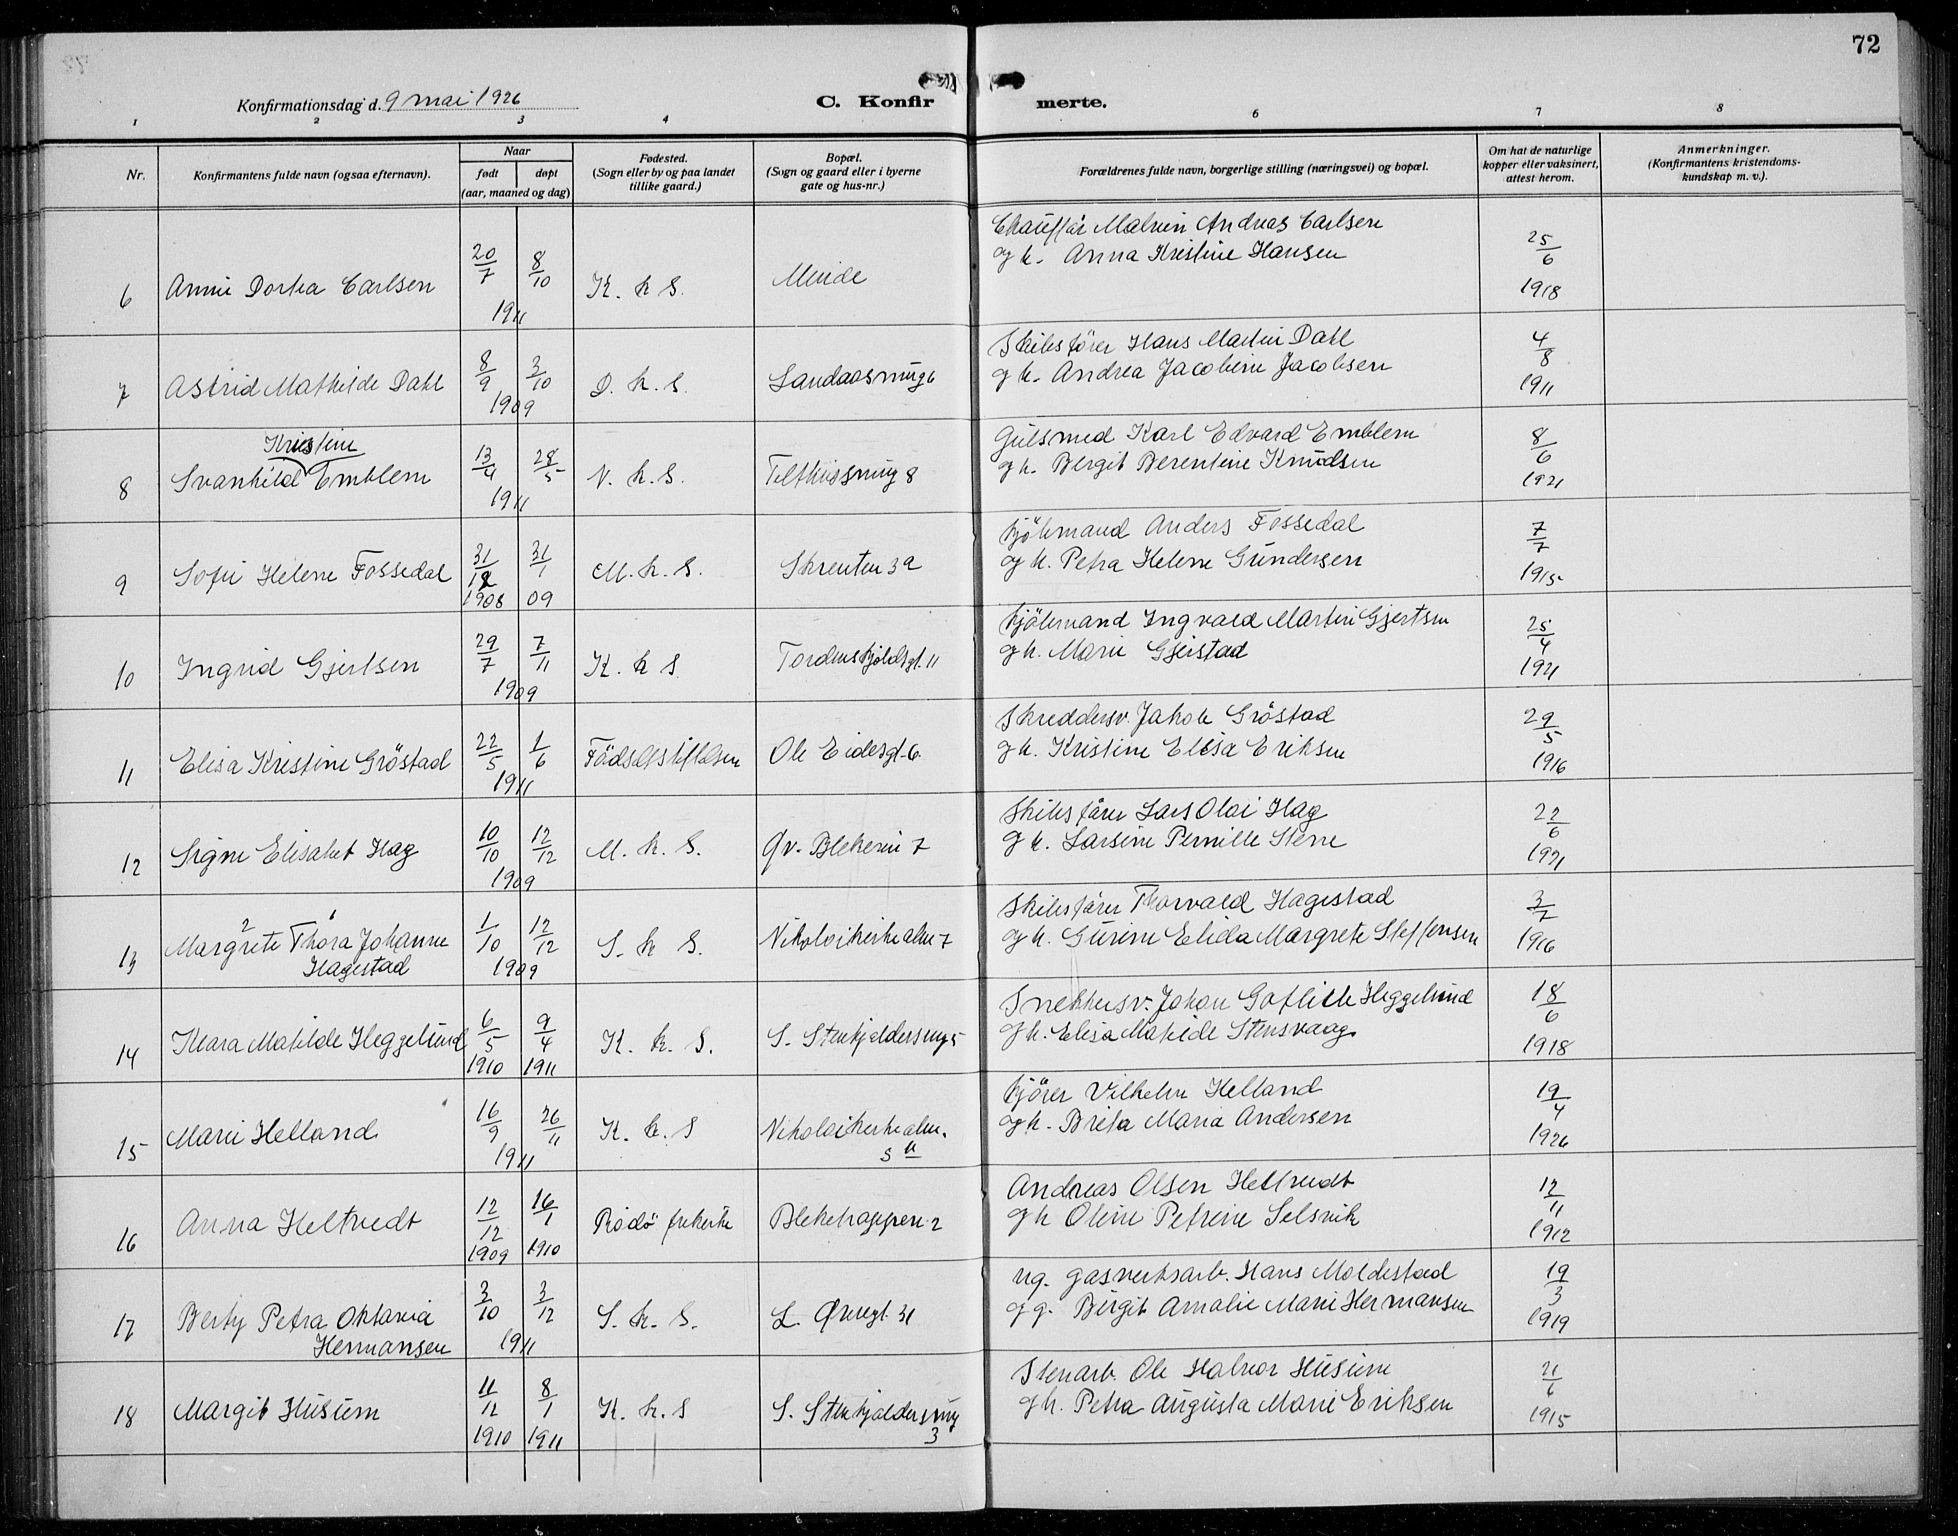 72
Konfirmationsdag d. 9 mai 1926
C. Konfirmerte.
1 2 3 4 6 7 8
Nr.
Konfirmantens fulde navn (ogsaa efternavn).
Naar
født
døpt
(aar, maaned og dag)
Fødested.
(Sogn eller by og paa landet
tillike gaard.)
Bopæl.
(Sogn og gaard eller i byerne
gate og hus-nr.)
Forældrenes fulde navn, borgerlige stilling (næringsvei) og bopæl.
Om hat de naturlige
kopper eller vaksinert,
attest herom.
Anmerkninger.
(Konfirmantens kristendoms-
kundskap m. v.).
6 Carlsen 20/7 8/10 1911 K. k. S. Minde
Andreas Carlsen
og h. Anna Kristine Hansen
25/6 1918
7 Astrid Mathilde Dahl 8/9 3/10 1909 D. k. S. Landaasmug 6
Skibsfører Hans Martin Dahl
og h. Andrea Jacobine Jacobsen
4/8 1911
Kristine
8 Svanhild Emblem 13/4 28/5 1911 N. k. S. 8
Gulsmed Karl Edvard Emblem
og h. Bergit Berentine Knudsen
8/6 1921
9 Sofie Helene Fossedal 31/12 1908 31/1 09 M. k. S. Skrenten 3a
Sjömand Anders Fossedal
og h. Petra Helene Gundersen
7/7 1915
10 Ingrid Gjertsen 29/7 7/11 1909 K. k. S. Tordenskjoldsgt. 11
Sjömand Ingvald Martin Gjertsen
og h. Marie Gjeistad
25/4 1921
11 Elisa Kristine Gröstad 22/5 1/6 1911 Födselsstiftelsen Ole Eidesgt. 6
Skreddersv. Jakob Gröstad
og h. Kristine Elisa Eriksen
29/5 1916
12 Signe Elisabet Hag 10/10 12/12 1909 M. k. S. Øv. Blekevei 7
Skibsfører Lars Olai Hag
og h. Larsine Pernille
22/6 1921
2 1
13 Margrete Thora Johanne
Hagestad
1/10 12/12 1909 S. k. S. Nikolaikirkealm 7
Skibsfører Thorvald Hagestad
og h. Gurine Elida Margrete Steffensen
3/7 1916
14 Klara Matilde Heggelund 6/5 1910 9/4 1911 K. k. S. S. Stenkjeldersmug 5
Snekkersv. Johan Gotlieb Heggelund
og h. Elisa Matilde Stensvaag
18/6 1918
15 Marie Helland 16/9 26/11 1911 K. k. S. Nikolaikirkealm.
Kjører Vilhelm Helland
og h. Brita Maria Andersen
19/4 1926
16 Anna Heltvedt 12/12 1909 16/1 1910 Rödö Bleketrappen 2
Andreas Olsen Heltvedt
og h. Oline Petrine Selsvik
12/11 1912
17 Berty Petra Oktavia
Hermansen
3/10 3/12 1911 S. k. S. L. Øvregt. 31
ug. gasverksarb. Hans Moldestad
og g. Birgit Amalie Marie Hermansen
19/3 1919
18 Margit Husum 11/12 1910 8/1 1911 K. k. S S. Stenkjeldersmug
3
Stenarb. Ole Halvor Husum
og h. Petra Augusta Marie Eriksen
21/6 1915